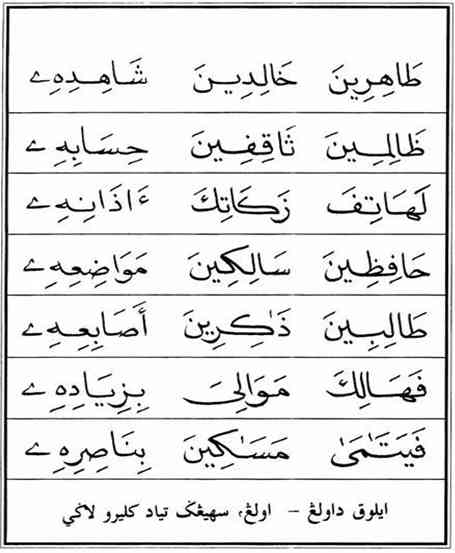 طَاهِرِينَ خَالِدِينَ شَاهِدِهِ ے
ظَالِمِينَ ثَاقِفِينَ حِسَابِهِ ے
لَهَاتِفَ زَكَاتِكَ ءَاذَانِهِ ے
حَافِظِينَ سَالِكِينَ مَوَاضِعِهِ ے
طَالِبِينَ ذَٰكِرِينَ أَصَابِعِهِ ے
فَهَالِكَ مَوَالِىَ بِزِيَادِهِ ے
فَيَتَٰمَىٰ مَسَٰكِينَ بِنَاصِرِهِ ے
ايلوق داولڠ – اولڠ، سهيڠݢ تياد كليرو لاݢي